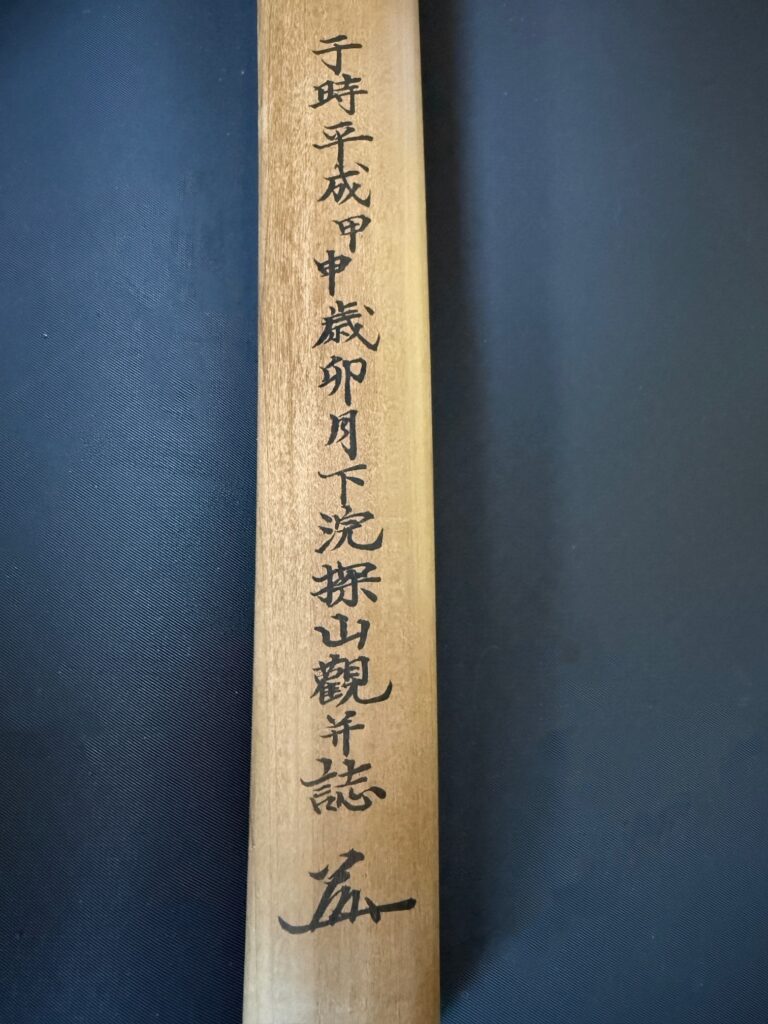 于時平成甲申歳卯月下浣探山觀并誌